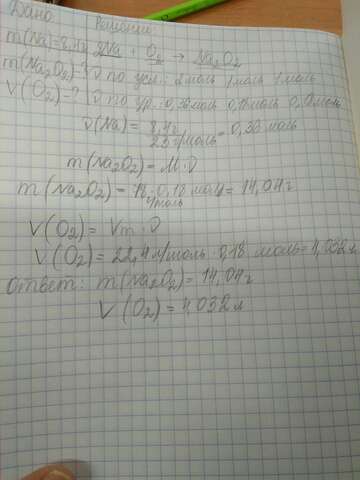 Дано Решение:
m(Na)=8,4г 2Na + O2 → Na2O2
m(Na2O2)-? ν по усл.: 2моль 1моль 1моль
V(O2)-? ν по ур.: 0,36моль 0,18моль 0,18моль
ν(Na)= 8,4г / 23 г/моль = 0,36 моль
m(Na2O2)= M·ν
m(Na2O2)= 78 г/моль · 0,18 моль = 14,04г
V(O2)= Vm·ν
V(O2)= 22,4 л/моль · 0,18 моль = 4,032 л
Ответ: m(Na2O2)= 14,04г
V(O2)= 4,032 л